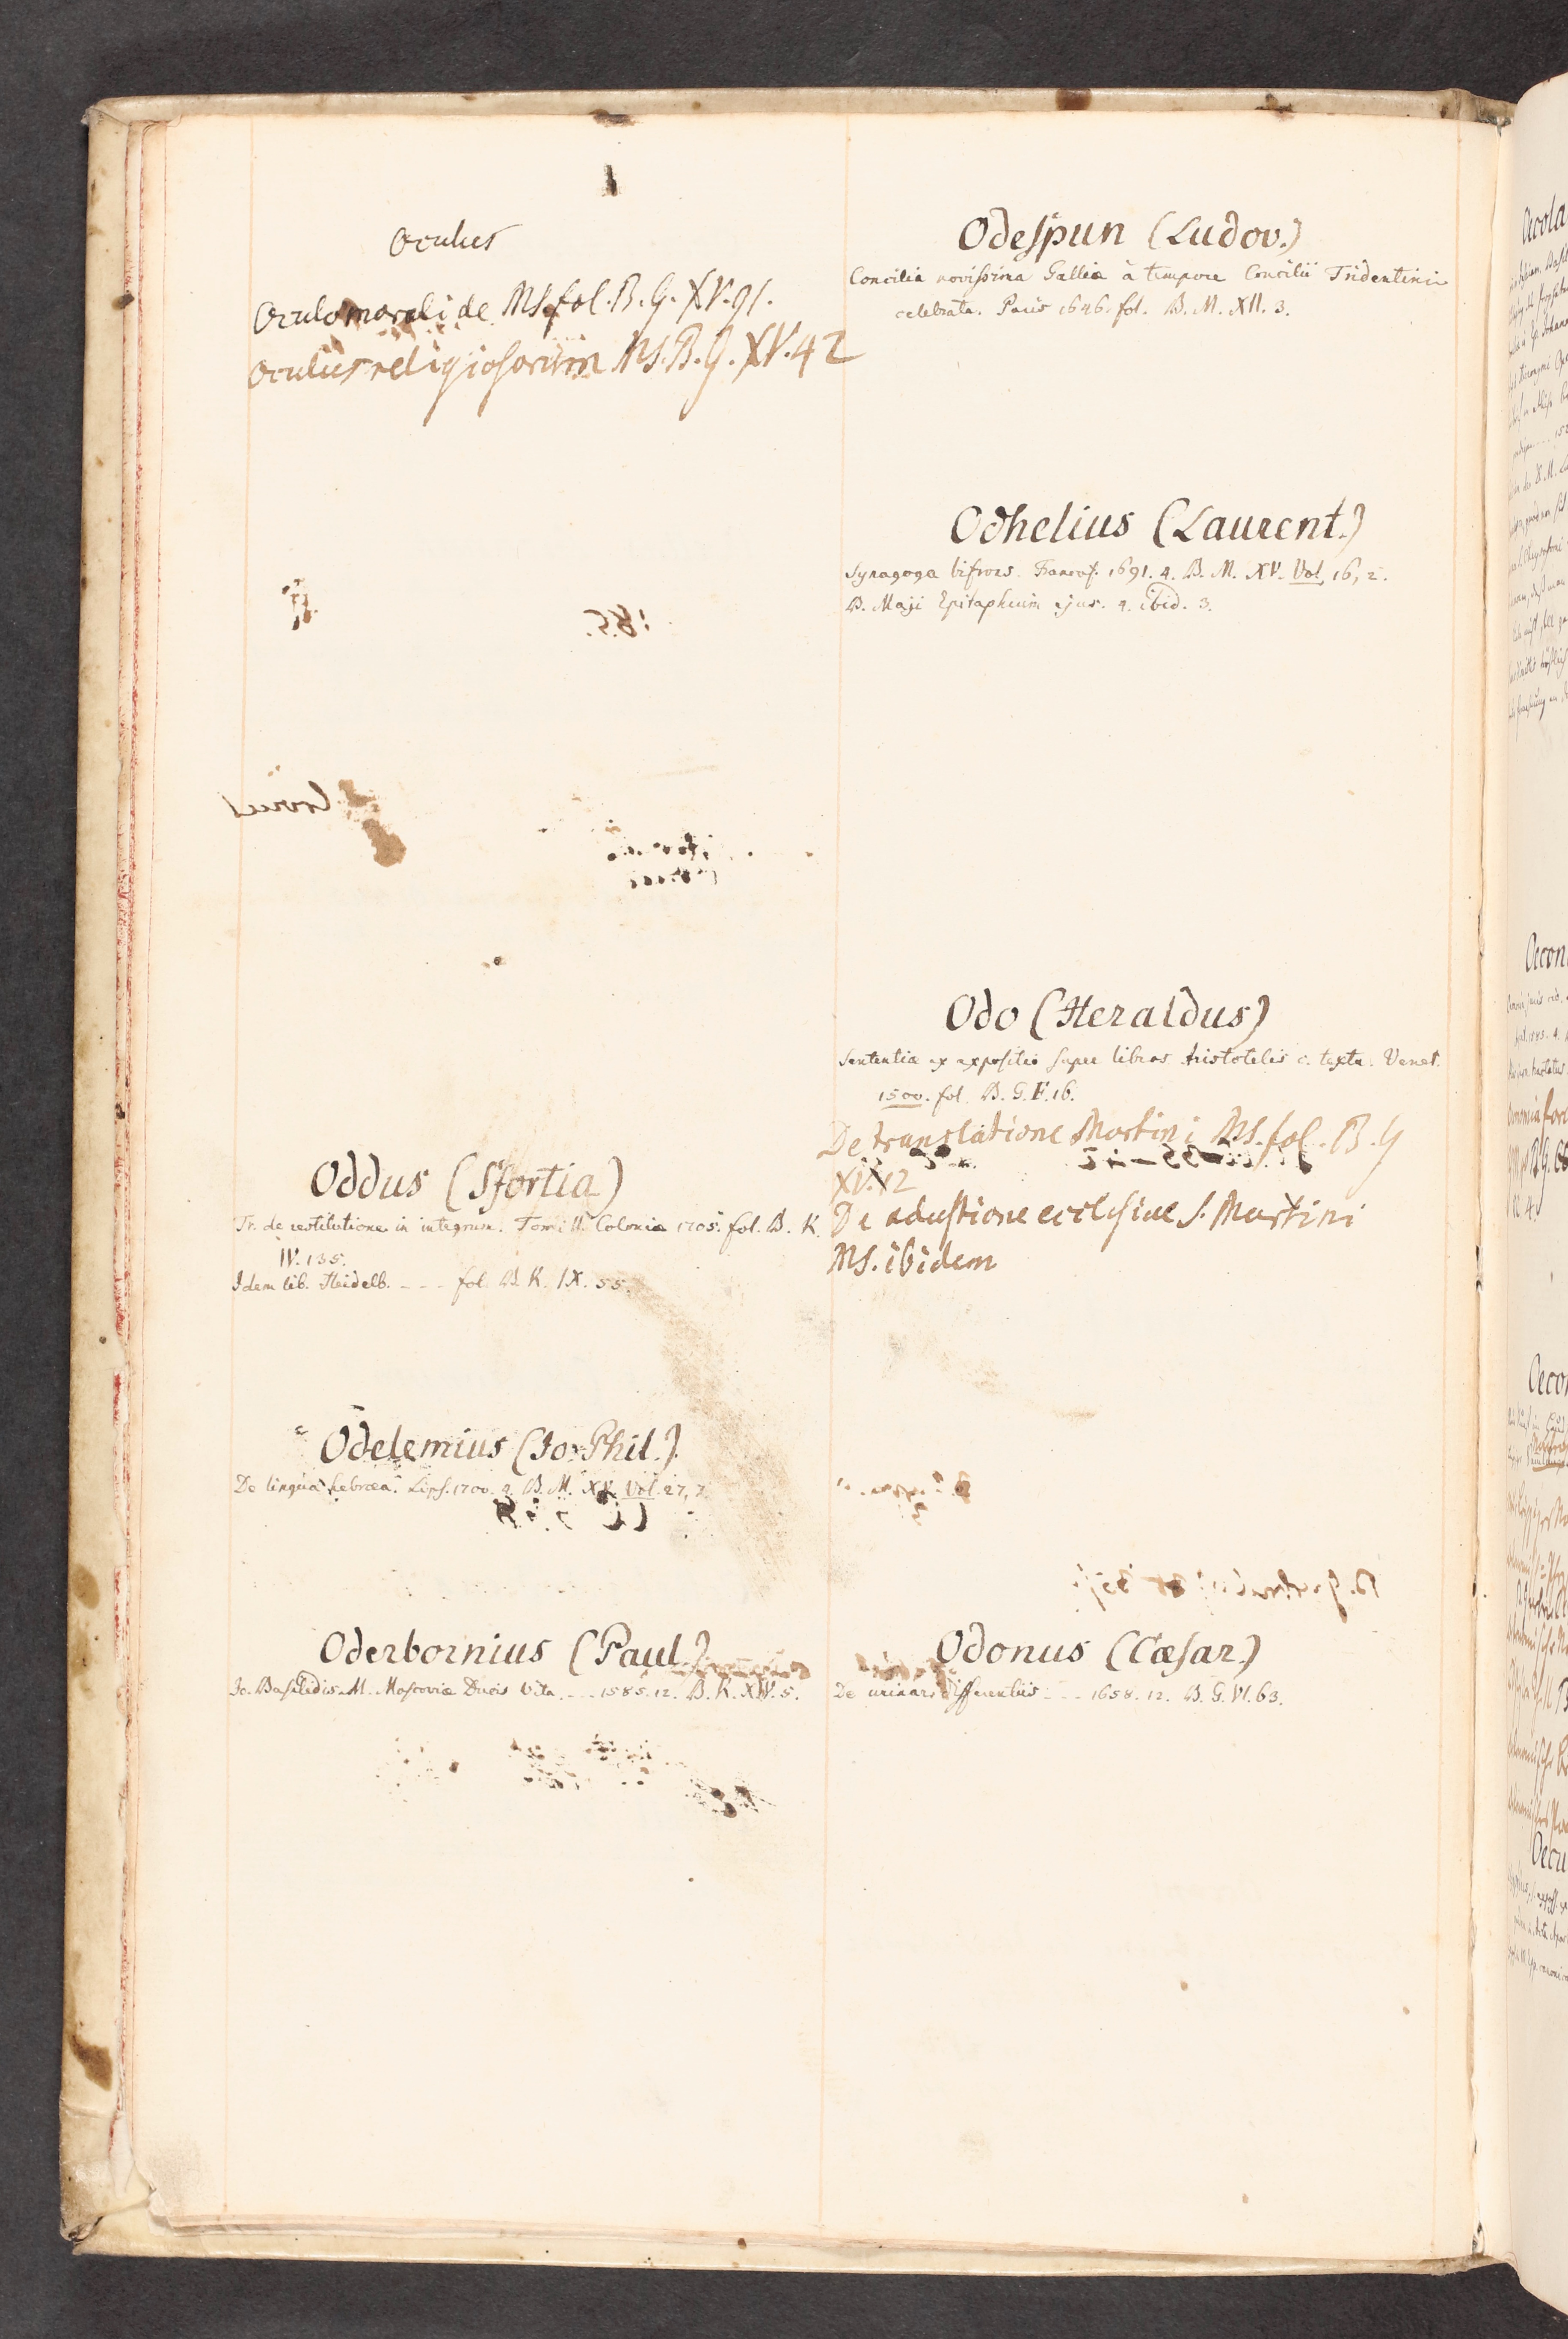 Oculus
Oculo morali de Ms. fol. B. G. XV. 91.
Oculus religiosorum Ms. B. G. XV. 42
Oddus (Sfortia)
Tr. de restitutione in integrum. Tomi II. Coloniæ 1705. fol. B. K.
IV. 135.
Idem lib. Heidelb. - - - fol. B. K. IX. 55.
Odelemius (Jo. Phil.)
De lingua hebræa. Lips. 1700. 4. B. M. XV. Vol. 27, 7.
Oderbornius (Paul.)
Jo. Basilidis M. Moscoviæ Ducis Vita. - - - 1585. 12. B. K. XIV. 5.
Odespun (Ludov.)
Concilia novissima Galliæ à tempore Concilii Tridentini
celebrata. Paris 1646. fol. B. M. XII. 3.
Odhelius (Laurent.)
Synagoga bifrons. Francof. 1691. 4. B. M. XV. Vol. 16, 2.
D. Maji Epitaphium ejus. 4. ibid. 3.
Odo (Heraldus)
Sententia ex expositio super libros Aristotelis c. textu. Venet.
1500. fol. B. G. F. 16.
De translatione Martini Ms. fol. B. G
XV. 12
De adustione ecclesiae S. Martini
Ms. ibidem
Odonus (Cæsar.)
De urinar. differentiis - - - 1658. 12. B. G. VI. 63.